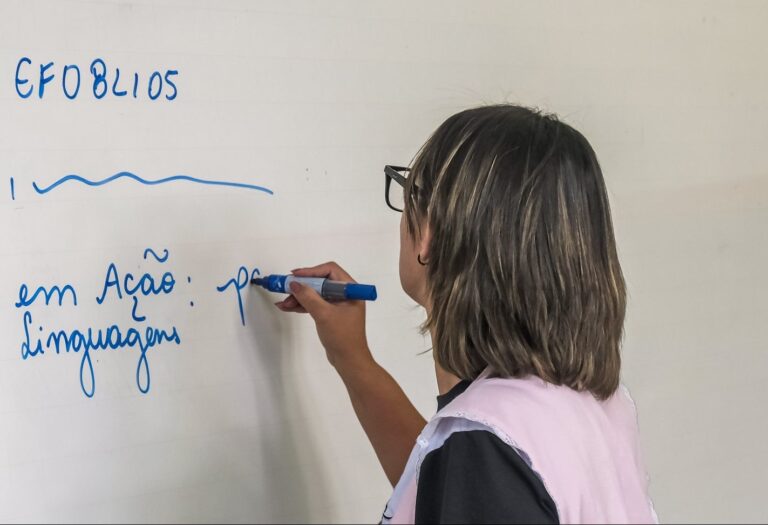 EF08LI05
em Ação: pa
Linguagens